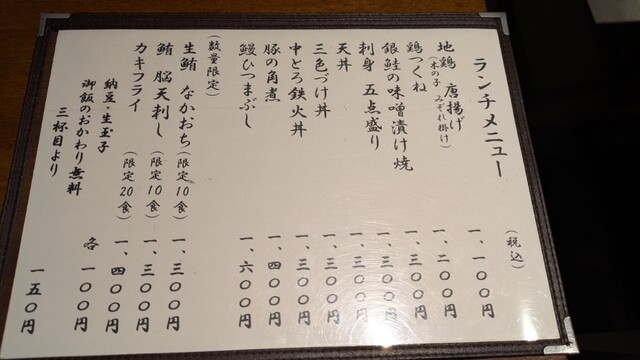 ランチメニュー
(税込)
地鶏 唐揚げ 一、一〇〇円
(木の子 みぞれ掛け)
鶏つくね 一、二〇〇円
銀鮭の味噌漬け焼 一、三〇〇円
刺身 五点盛り 一、三〇〇円
天丼 一、三〇〇円
三色づけ丼 一、三〇〇円
中とろ鉄火丼 一、三〇〇円
豚の角煮 一、四〇〇円
鰻ひつまぶし 一、六〇〇円
(数量限定)
生鮪 なかおち (限定10食) 一、三〇〇円
鮪 脳天刺し (限定10食) 一、三〇〇円
カキフライ (限定20食) 一、四〇〇円
納豆・生玉子 各 一〇〇円
御飯のおかわり無料
三杯目より 一五〇円